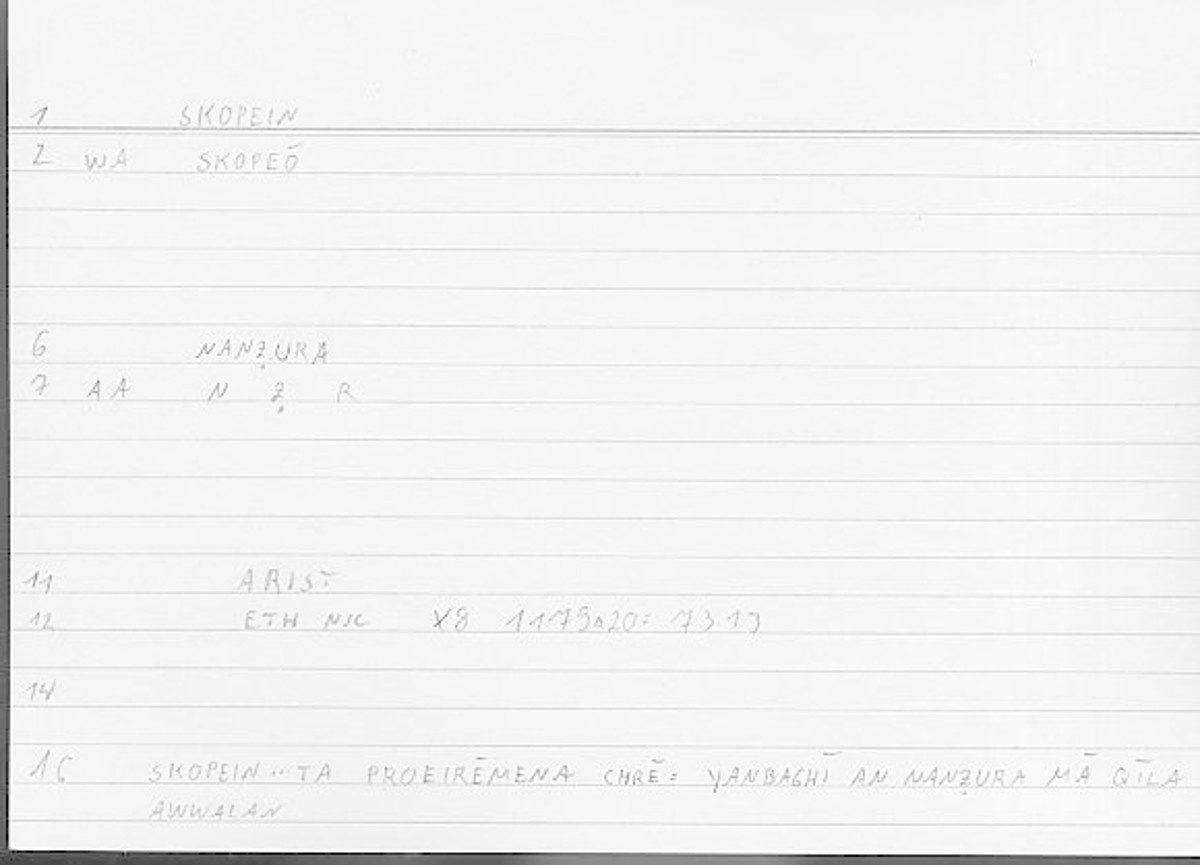 1 SKOPEIN
2 WA SKOPEŌ
6 NANẒURA
7 AA N Ẓ R
11 ARIST
12 ETH NIC X8 1179a20: 73.13
14
16 SKOPEIN...TA PROEIRĒMENA CHRĒ: YANBAGHĪ AN NANẒURA MĀ QĪLA
AWWALAN